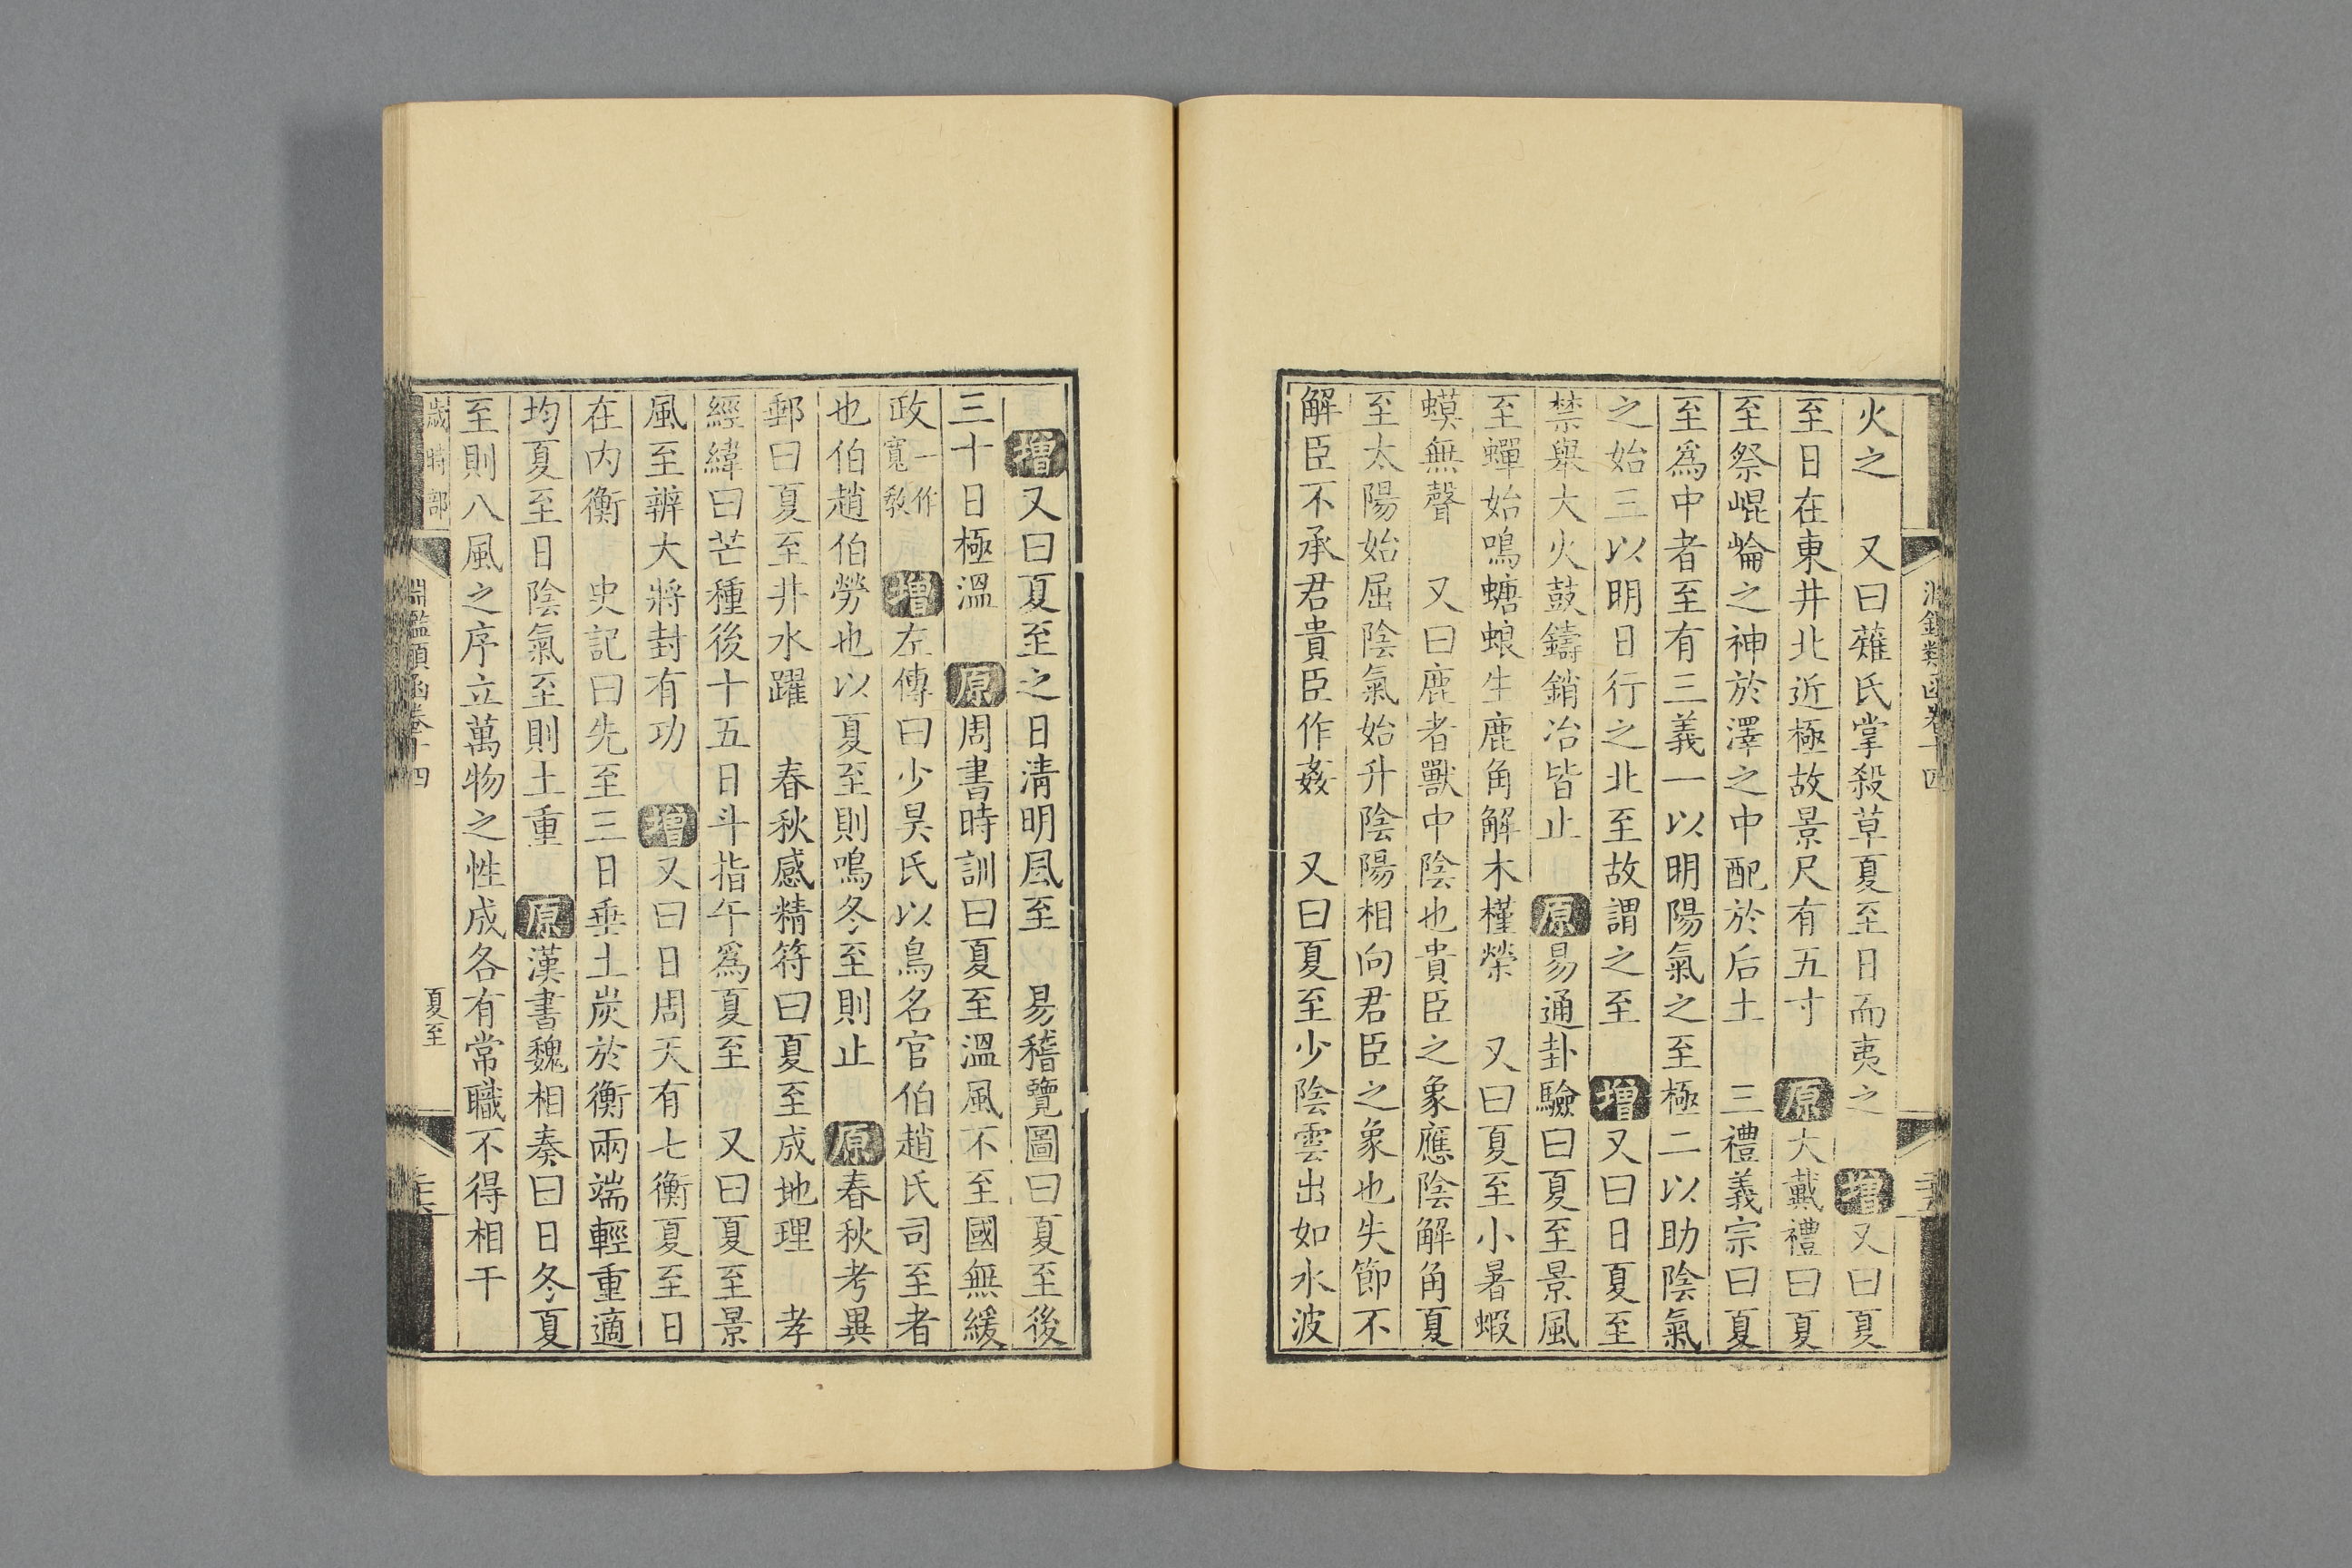 火之 又曰薙氏掌殺草夏至日而夷之 增又曰夏
至日在東井北近極故景尺有五寸 原大戴禮曰夏
至祭崐崘之神於澤之中配於后土 三禮義宗曰夏
至爲中者至有三義一以明陽氣之至極二以助陰氣
之始三以明日行之北至故謂之至 增又曰日夏至
禁舉大火鼓鑄銷冶皆止 原易通卦驗曰夏至景風
至蟬始鳴螗蜋生鹿角解木槿榮 又曰夏至小暑蝦
蟆無聲 又曰鹿者獸中陰也貴臣之象應陰解角夏
至太陽始屈陰氣始升陰陽相向君臣之象也失節不
解臣不承君貴臣作姦 又曰夏至少陰雲出如水波
增又曰夏至之日清明風至 易稽覽圖曰夏至後
三十日極溫 原周書時訓曰夏至溫風不至國無緩
政一作寬敎 增左傳曰少昊氏以鳥名官伯趙氏司至者
也伯趙伯勞也以夏至則鳴冬至則止 原春秋考異
郵曰夏至井水躍 春秋感精符曰夏至成地理 孝
經緯曰芒種後十五日斗指午爲夏至 又曰夏至景
風至辨大將封有功 增又曰日周天有七衡夏至日
在内衡 史記曰先至三日垂土炭於衡兩端輕重適
均夏至日陰氣至則土重 原漢書魏相奏曰日冬夏
至則八風之序立萬物之性成各有常職不得相干
歲時部
淵鑑類函卷十四
夏至